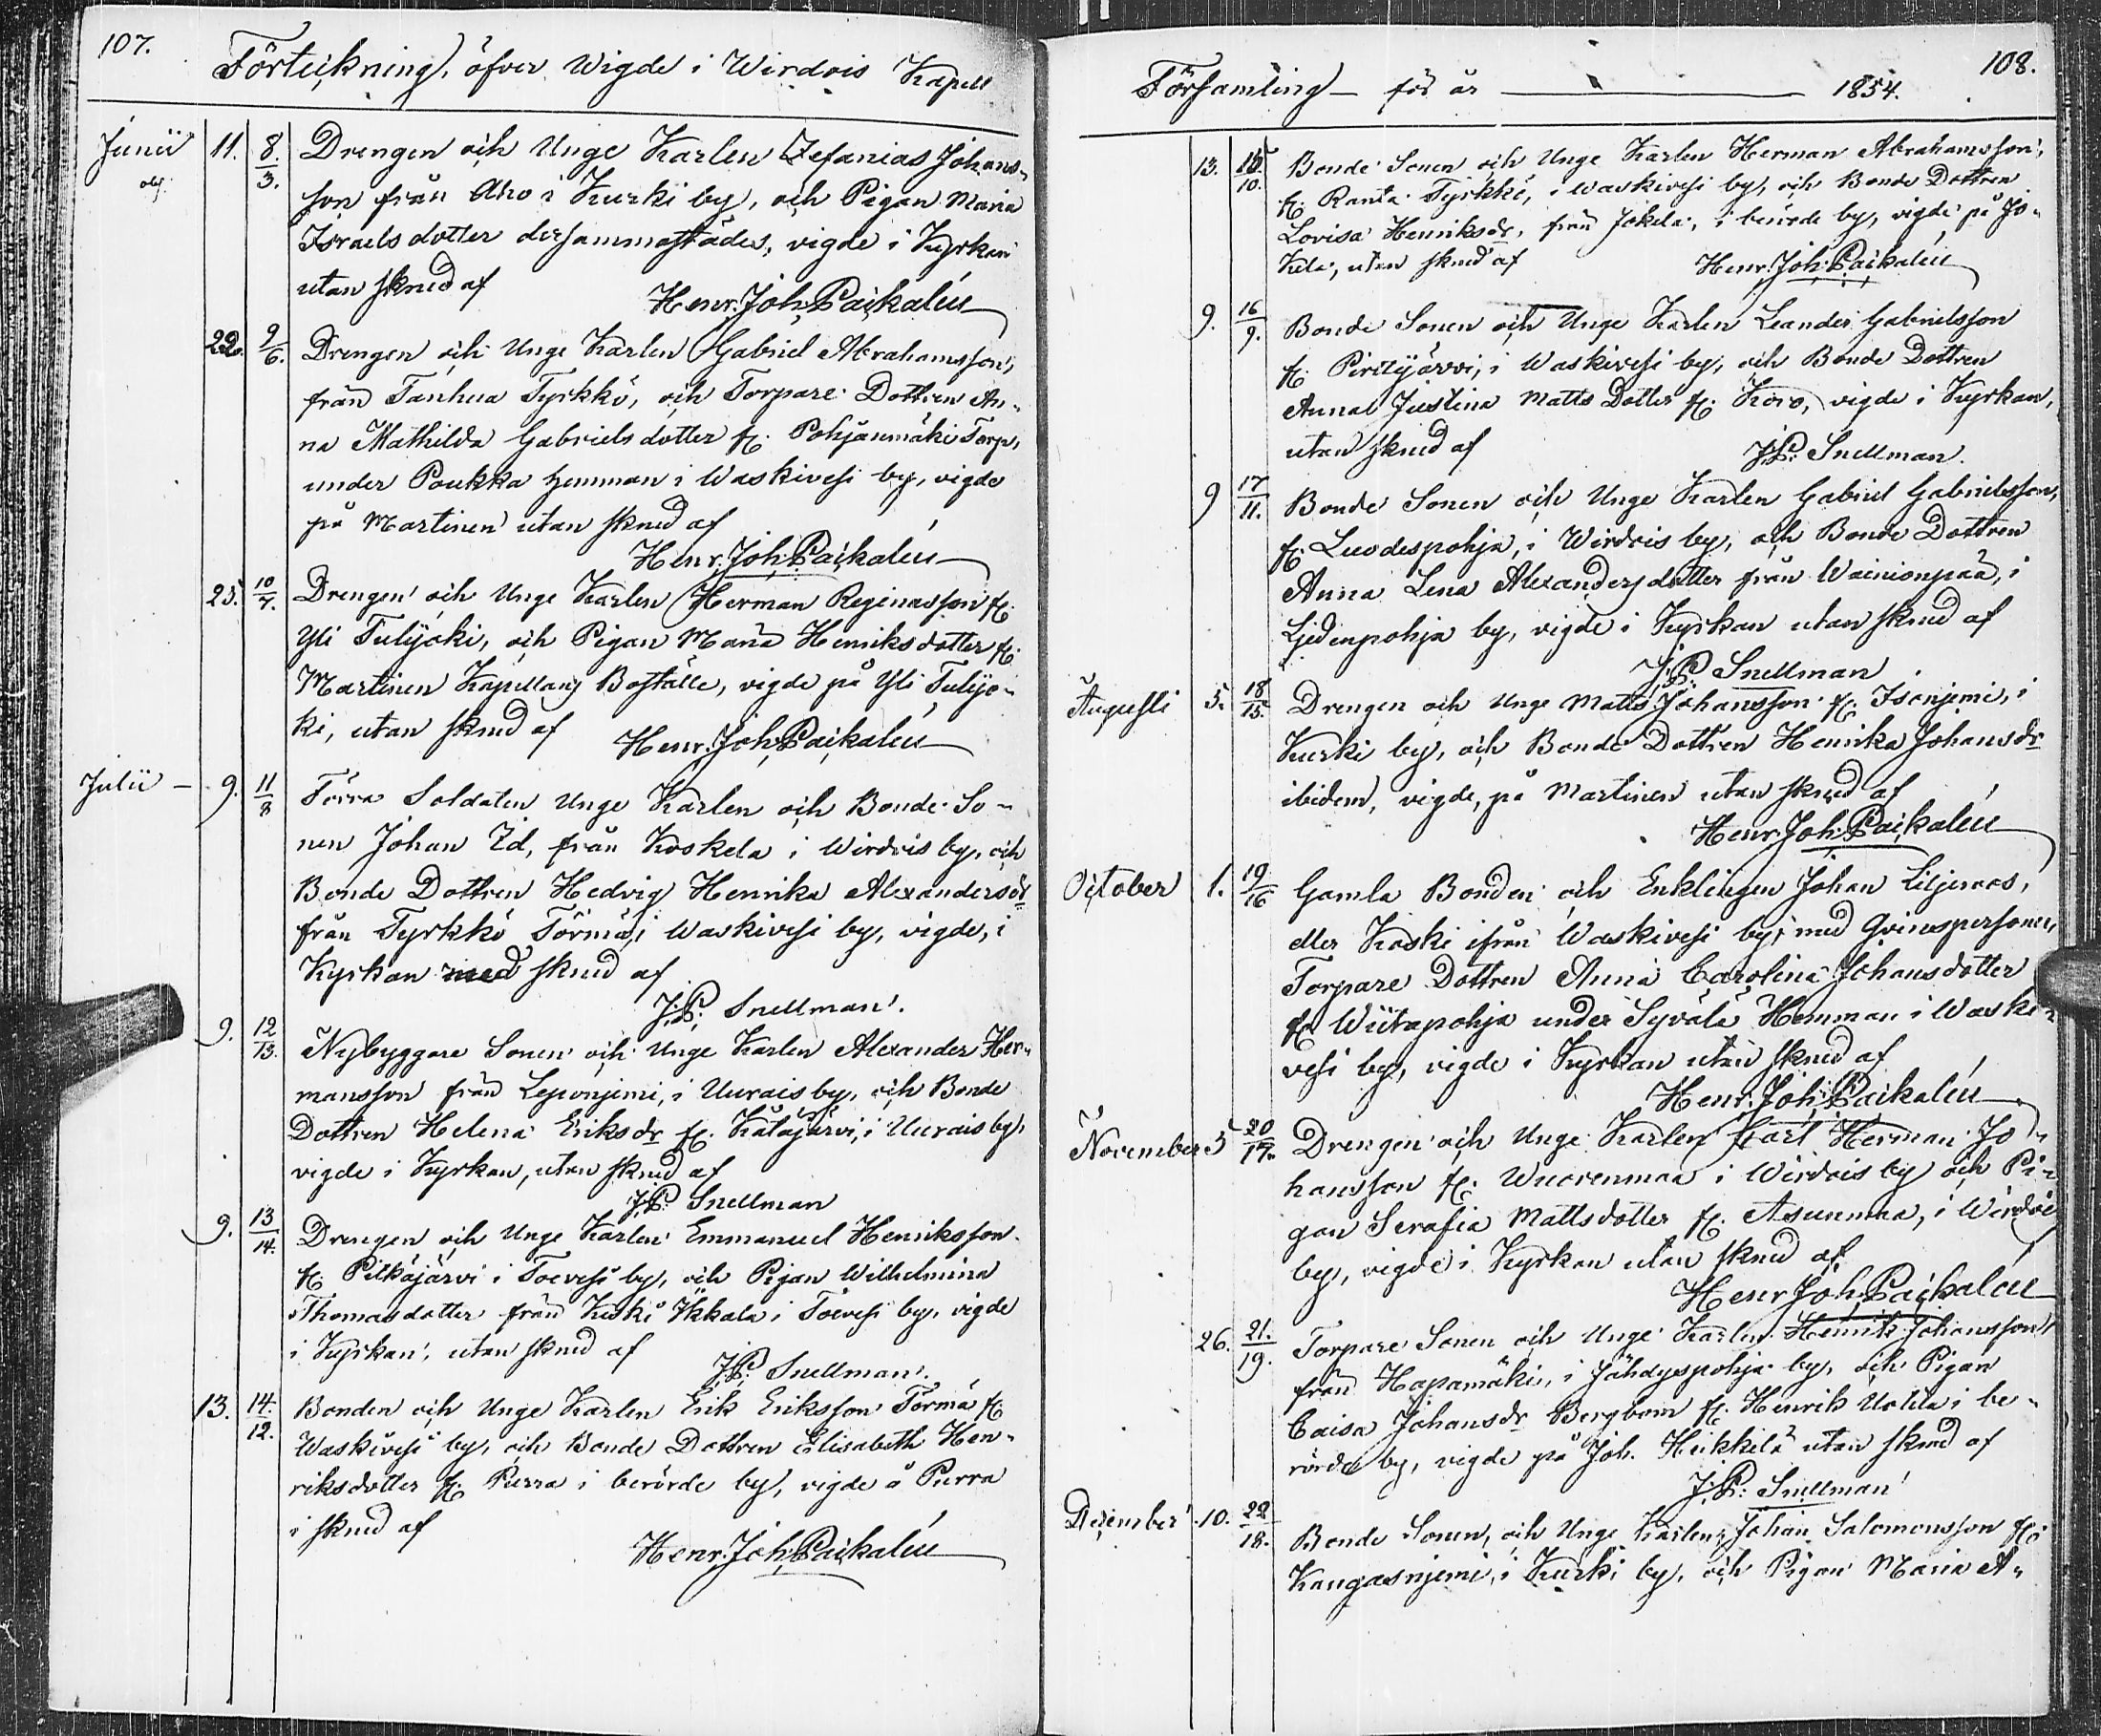 107.
Förteckning, öfver Wigde i Wirdois Kapell
Junii 11. 8/3. Drengen och Unge Karlen Zefanias Johans-
son från Aho i Kurki by, och Pigan Maria
Israelsdotter dersammastädes, vigde i Kyrkan
utan skrud af
Henr. Joh. Paikalén
22. 9/6. Drengen och Unge Karlen Gabriel Abrahamsson,
från Tanhua Tyrkkö, och Torpare Dottren An-
na Mathilda Gabrielsdotter fr. Pohjanmäki Torp,
under Poukka hemman i Waskivesi by, vigde
på Martinen utan skrud af
Henr. Joh. Paikalén
25. 10/7. Drengen och Unge Karlen Herman Reginasson fr.
Yli Tulijoki, och Pigan Maria Henriksdotter fr.
Martinen Kapellans Boställe, vigde på Yli Tulijo-
ki, utan skrud af Henr. Joh. Paikalén
Julii 9. 11/8 Förra Soldaten Unge Karlen och Bonde So-
nen Johan Id, från Koskela i Wirdois by, och
Bonde Dottren Hedvig Henrika Alexandersdr
från Tyrkkö Törmä, i Waskivesi by, vigde, i
Kyrkan med skrud af
J.P. Snellman.
9. 12/13. Nybyggare Sonen och Unge Karlen Alexander Her-
mansson från Leponjemi, i Uurais by, och Bonde
Dottren Helena Eriksdr fr. Katajärvi, i Uurais by,
vigde i Kyrkan, utan skrud af
J.P. Snellman
9. 13/14. Drengen och Unge Karlen Emmanuel Henriksson
fr. Pitkäjärvi i Toevesi by, och Pigan Wilhelmina
Thomasdotter från Keski Ikkala i Toevesi by, vigde
i Kyrkan, utan skrud af
J.P. Snellman.
13. 14./12. Bonden och Unge Karlen Erik Eriksson Törmä fr
Waskivesi by, och Bonde Dottren Elisabeth Hen-
riksdotter fr. Purra i berörde by, vigde å Purra
i skrud af
Henr. Joh. Paikalén
108.
Församling för år 1854.
13. 15/10. Bonde Sonen och Unge Karlen Herman Abrahamsson,
fr. Ranta Tyrkkö, i Waskivesi by, och Bonde Dottren
Lovisa Henriksdr. från Jokela, i berörde by, vigde på Jo-
kela, utan skrud af Henr. Joh. Paikalén
9. 16/9. Bonde Sonen och Unge Karlen Leander Gabrielsson
fr. Piritijärvi, i Waskivesi by, och Bonde Dottren
Anna Justina Matts Dotter fr. Koro, vigde i Kyrkan,
utan skrud af J.P. Snellman.
9 17/11. Bonde Sonen och Unge Karlen Gabriel Gabrielsson,
fr. Luodespohja, i Wirdois by, och Bonde Dottren
Anna Lena Alexandersdotter från Wainionpää, i
Ljedenpohja by, vigde i Kyrkan utan skrud af
J.P. Snellman
Augusti 5. 18/15. Drengen och Unge Matts Johansson fr. Isonjemi, i
Kurki by, och Bonde Dottren Henrika Johansdr
ibidem, vigde, på Martinen utan skrud af
Henr. Joh. Paikalén
October 1. 19/16 Gamla Bonden och Enklingen Johan Liljeroos,
eller Koski ifrån Waskivesi by, med Qvinspersonen,
Torpare Dottren Anna Carolina Johansdotter
fr. Wiitapohja under Syvälä Hemman i Waski-
vesi by, vigde i Kyrkan utan skrud af
Henr. Joh. Paikalén
November 5 20/17. Drengen och Unge Karlen Carl Herman Jo-
hansson fr. Wuorenmaa i Wirdois by och Pi-
gan Serafia Mattsdotter fr. Asunmaa, i Wirdois
by, vigde i Kyrkan utan skrud af
Henr. Joh. Paikalén
26. 21./19. Torpare Sonen och Unge Karlen Henrik Johansson,
från Hapamäki, i Jähdyspohja by, och Pigan
Caisa Johansdr Bergbom fr. Henrik Uotila i be-
rörde by, vigde på Joh. Heikkilä utan skrud af
J.P. Snellman
December 10. 22/18. Bonde Sonen, och Unge Karlen Johan Salomonsson fr.
Kangasnjemi, i Kurki by, och Pigan Maria A-